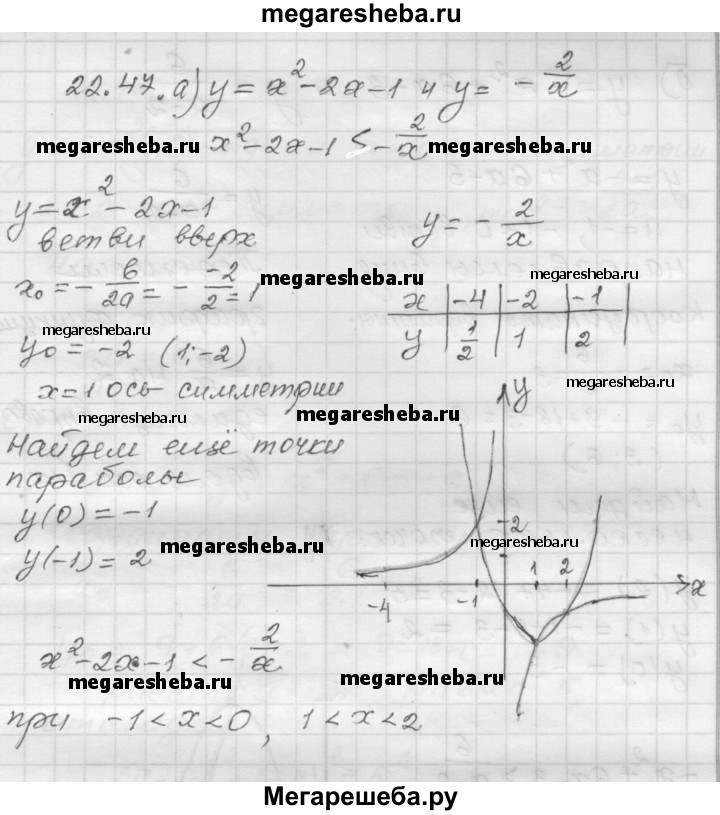 megaresheba.ru
22.47. а) y = x² - 2x - 1 и y = - 2/x
megaresheba.ru x² - 2x - 1 < - 2/x megaresheba.ru
y = x² - 2x - 1
ветви вверх
x₀ = - b/2a = - -2/2 = 1
megaresheba.ru
y₀ = -2 (1; -2)
x = 1 ось симметрии
megaresheba.ru
Найдем ещё точки
параболы
y(0) = -1
y(-1) = 2
megaresheba.ru
y = - 2/x
megaresheba.ru
x | -4 | -2 | -1
y | 1/2 | 1 | 2
megaresheba.ru
megaresheba.ru
y
2
megaresheba.ru
-4 -1 1 2 x
x² - 2x - 1 < - 2/x
megaresheba.ru
megaresheba.ru
при -1 < x < 0, 1 < x < 2
Мегарешеба.ру